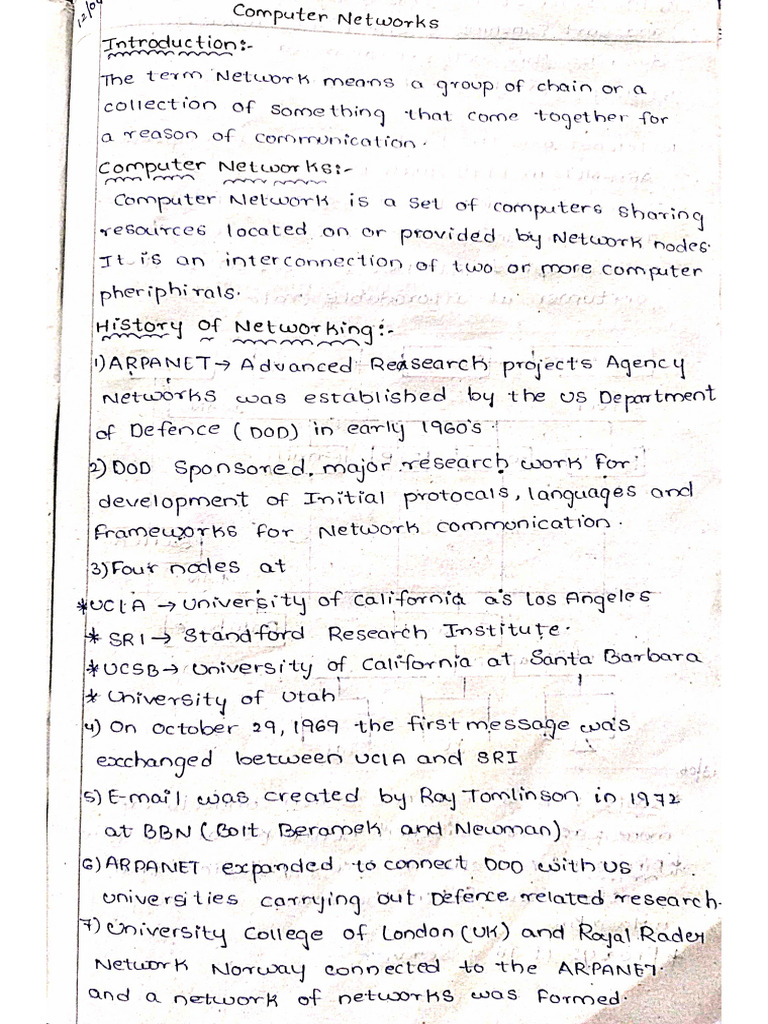 12/04
Computer Networks
Introduction:-
The term Network means a group of chain or a
collection of something that come together for
a reason of communication.
Computer Networks:-
Computer Network is a set of computers sharing
resources located on or provided by Network nodes.
It is an interconnection of two or more computer
pheriphirals.
History of Networking:-
1) ARPANET → Advanced Reasearch projects Agency
Networks was established by the US Department
of Defence (DOD) in early 1960's
2) DOD Sponsored major research work for
development of Initial protocals, languages and
frameworks for Network communication.
3) Four nodes at
* UCLA → University of California as Los Angeles
* SRI → Standford Research Institute.
* UCSB → University of California at Santa Barbara
* University of Utah
4) On October 29, 1969 the first message was
exchanged between UCLA and SRI
5) E-mail was created by Roy Tomlinson in 1972
at BBN (Bolt Beramek and Newman)
6) ARPANET expanded to connect DOD with US
universities carrying out Defence related research.
7) University College of London (UK) and Royal Rader
Network Norway connected to the ARPANET.
and a network of networks was formed.